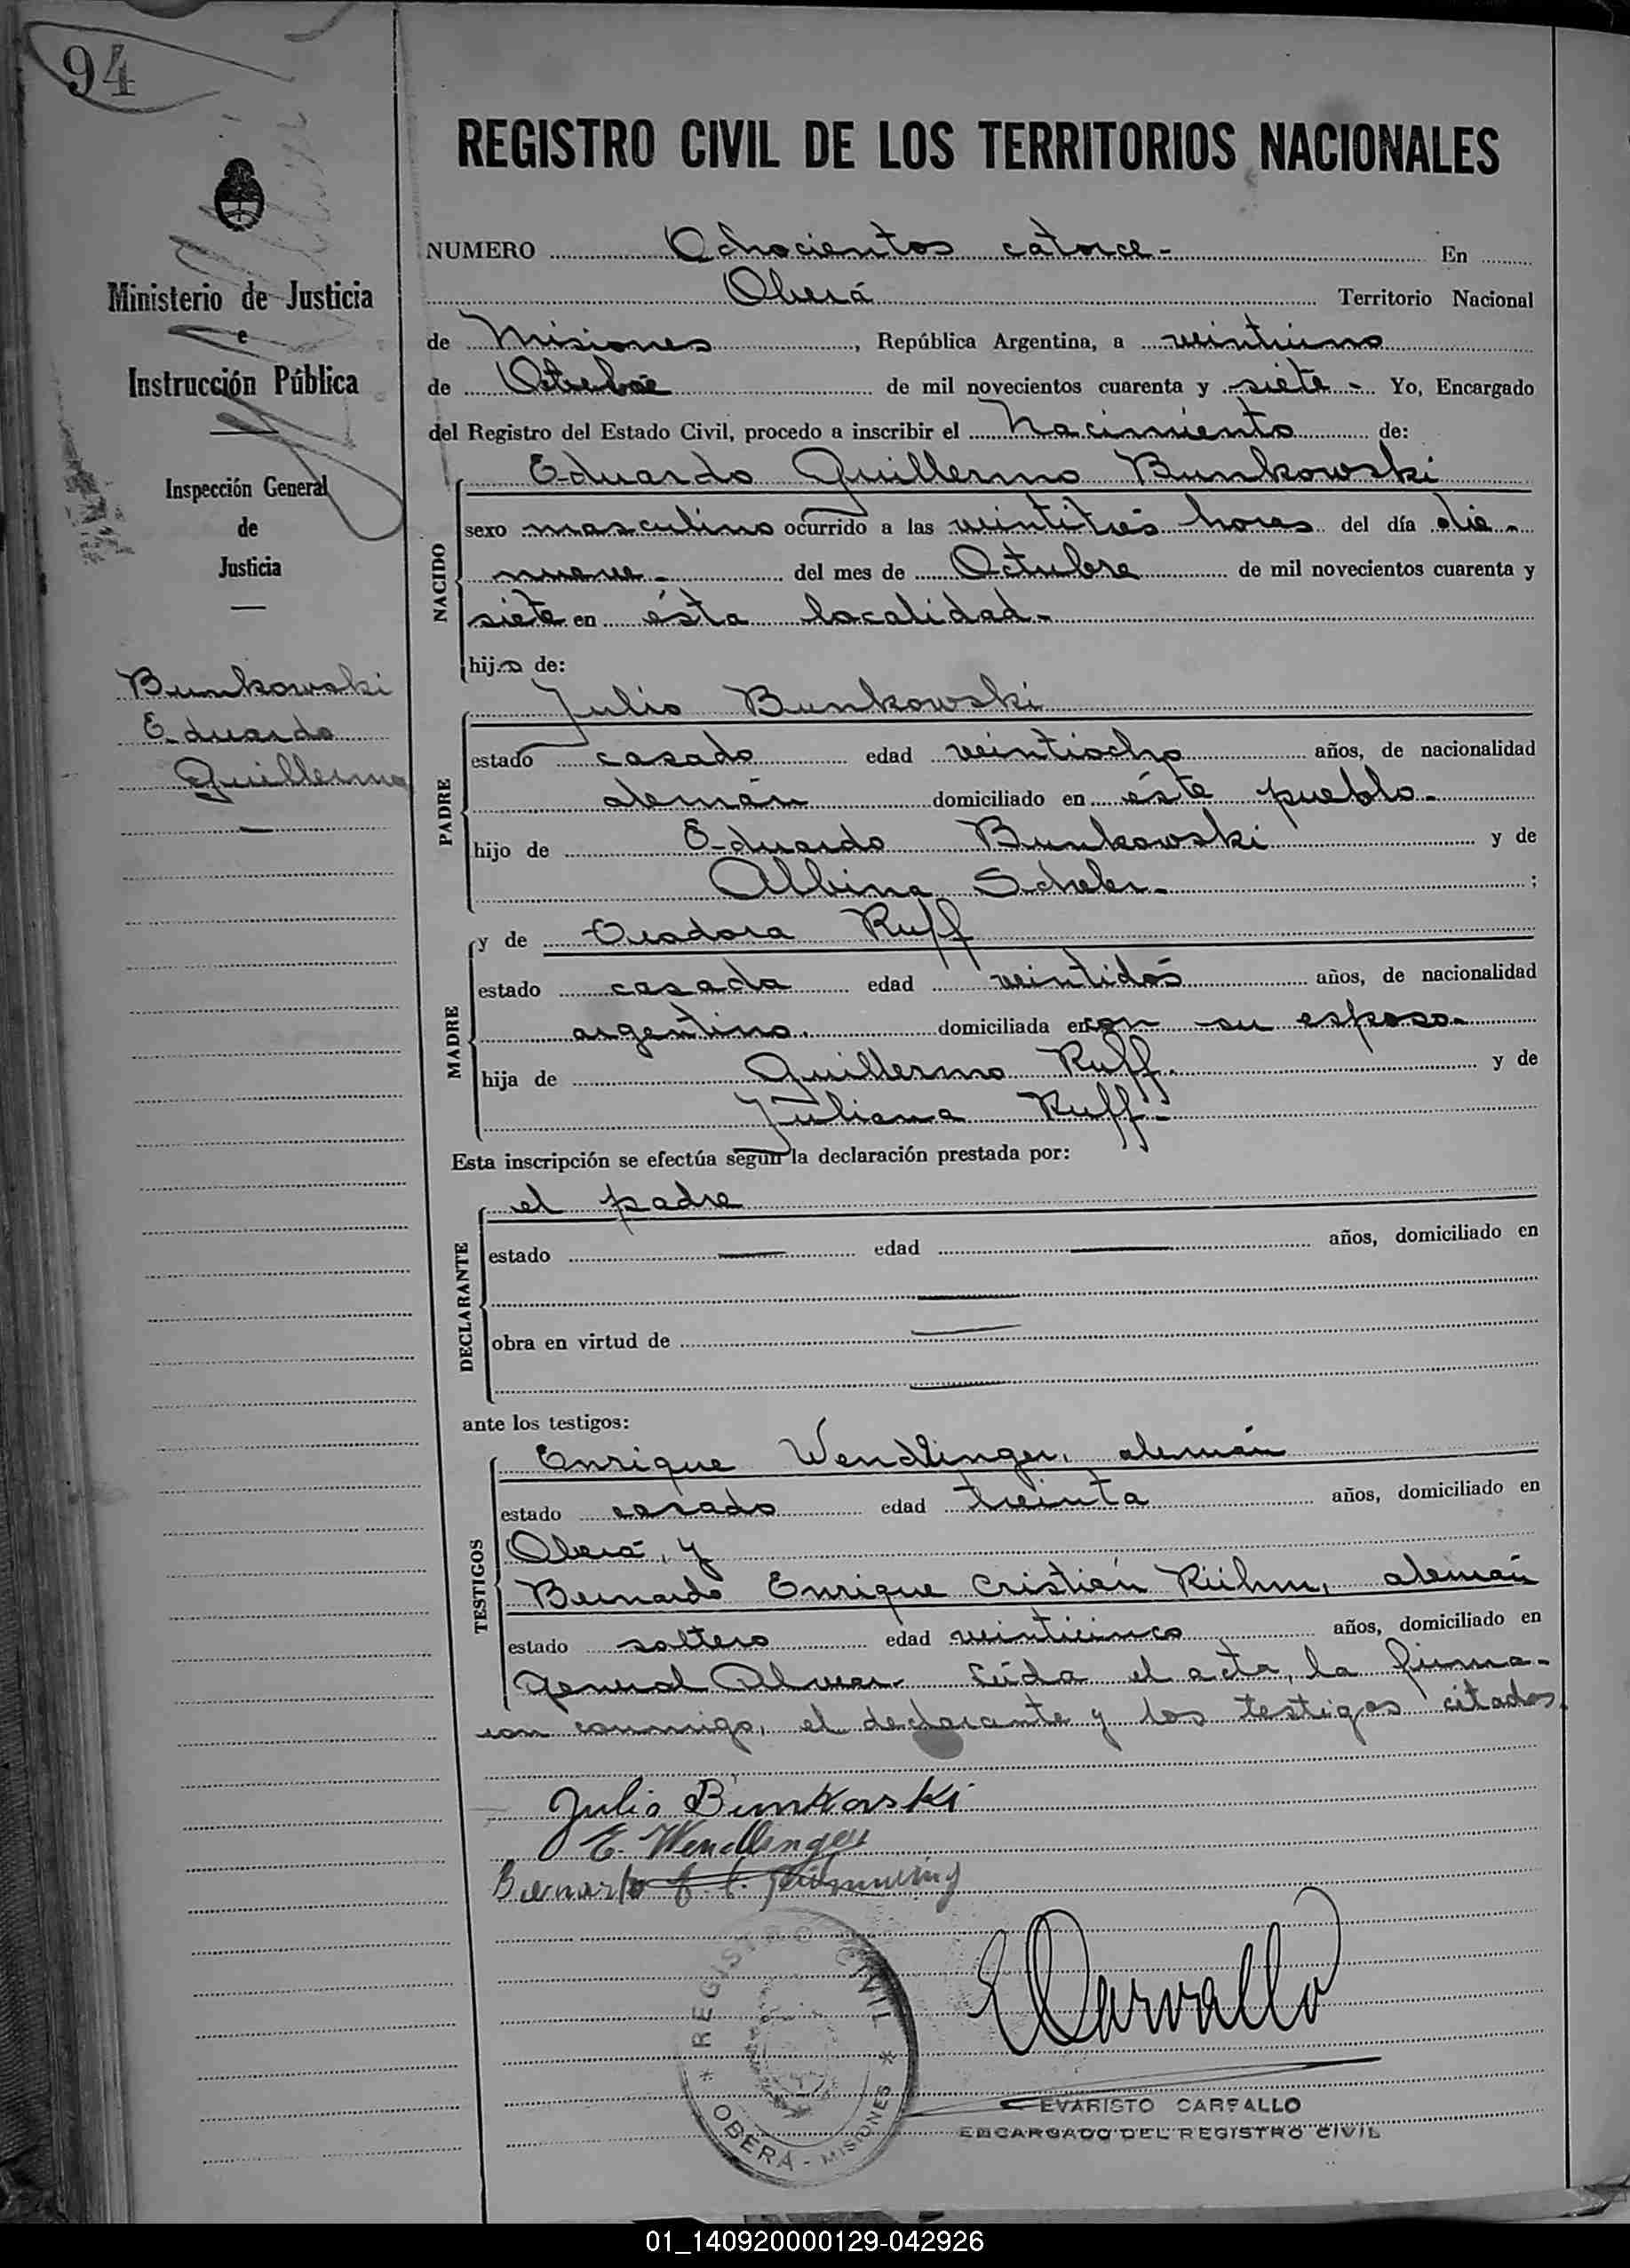 94
REGISTRO CIVIL DE LOS TERRITORIOS NACIONALES
Ministerio de Justicia
e
Instrucción Pública
Inspección General
de
Justicia
Bunkowski
Eduardo
Guillermo
NUMERO Ochocientos catorce - En
Oberá Territorio Nacional
de Misiones, República Argentina, a veintiuno
de Octubre de mil novecientos cuarenta y siete - Yo, Encargado
del Registro del Estado Civil, procedo a inscribir el Nacimiento de:
Eduardo Guillermo Bunkowski
NACIDO
sexo masculino ocurrido a las veintitrés horas del día die-
nueve - del mes de Octubre de mil novecientos cuarenta y
siete en ésta localidad -
hijo de:
Julio Bunkowski
PADRE
estado casado edad veintiocho años, de nacionalidad
alemán domiciliado en éste pueblo -
hijo de Eduardo Bunkowski y de
Albina Scheler - ;
y de Teodora Ruff
MADRE
estado casada edad veintidós años, de nacionalidad
argentina. domiciliada en con su esposo -
hija de Guillermo Ruff. y de
Juliana Ruff -
Esta inscripción se efectúa según la declaración prestada por:
el padre
DECLARANTE
estado — edad — años, domiciliado en
—
obra en virtud de —
—
ante los testigos:
Enrique Wendlinger, alemán
TESTIGOS
estado casado edad treinta años, domiciliado en
Oberá, y
Bernardo Enrique Cristián Rühm, alemán
estado soltero edad veinticinco años, domiciliado en
General Alvear. Leída el acta, la firma-
ron conmigo, el declarante y los testigos citados.
Julio Bunkowski
E. Wendlinger
Bernardo E. C.
ECarvallo
REGISTRO CIVIL
* OBERÁ - MISIONES *
EVARISTO CARVALLO
ENCARGADO DEL REGISTRO CIVIL
01_140920000129-042926